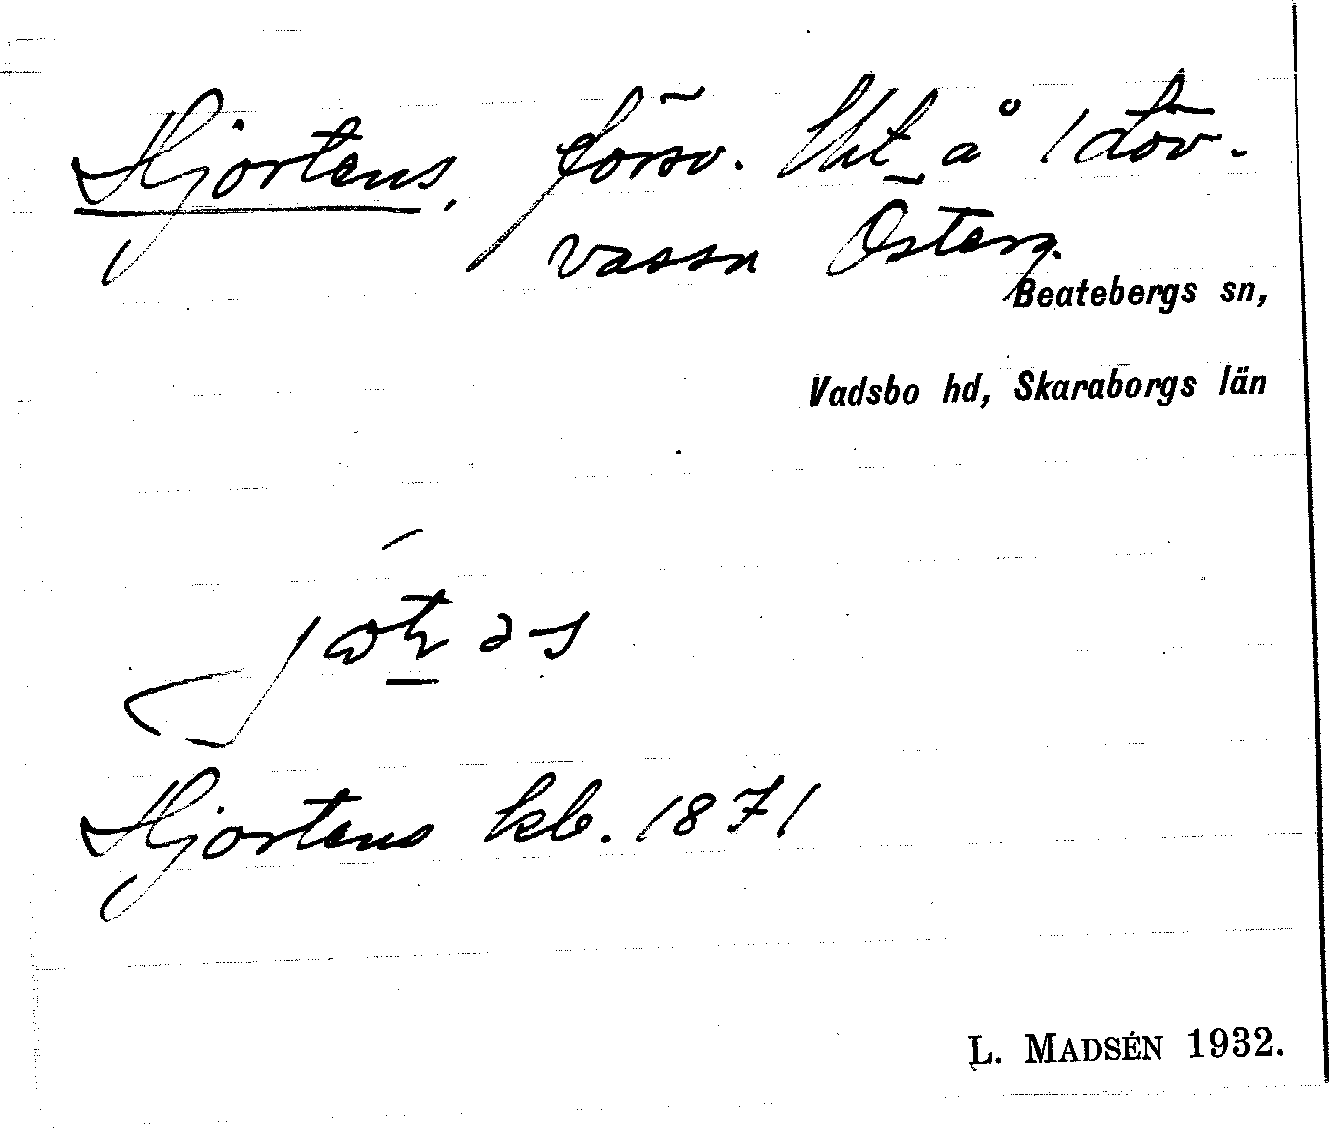 Hjortens, försv. lht å Idöv-
vassn Österg.
Beatebergs sn,
Vadsbo hd, Skaraborgs län
Hjortens kb. 1871
L. MADSÉN 1932.